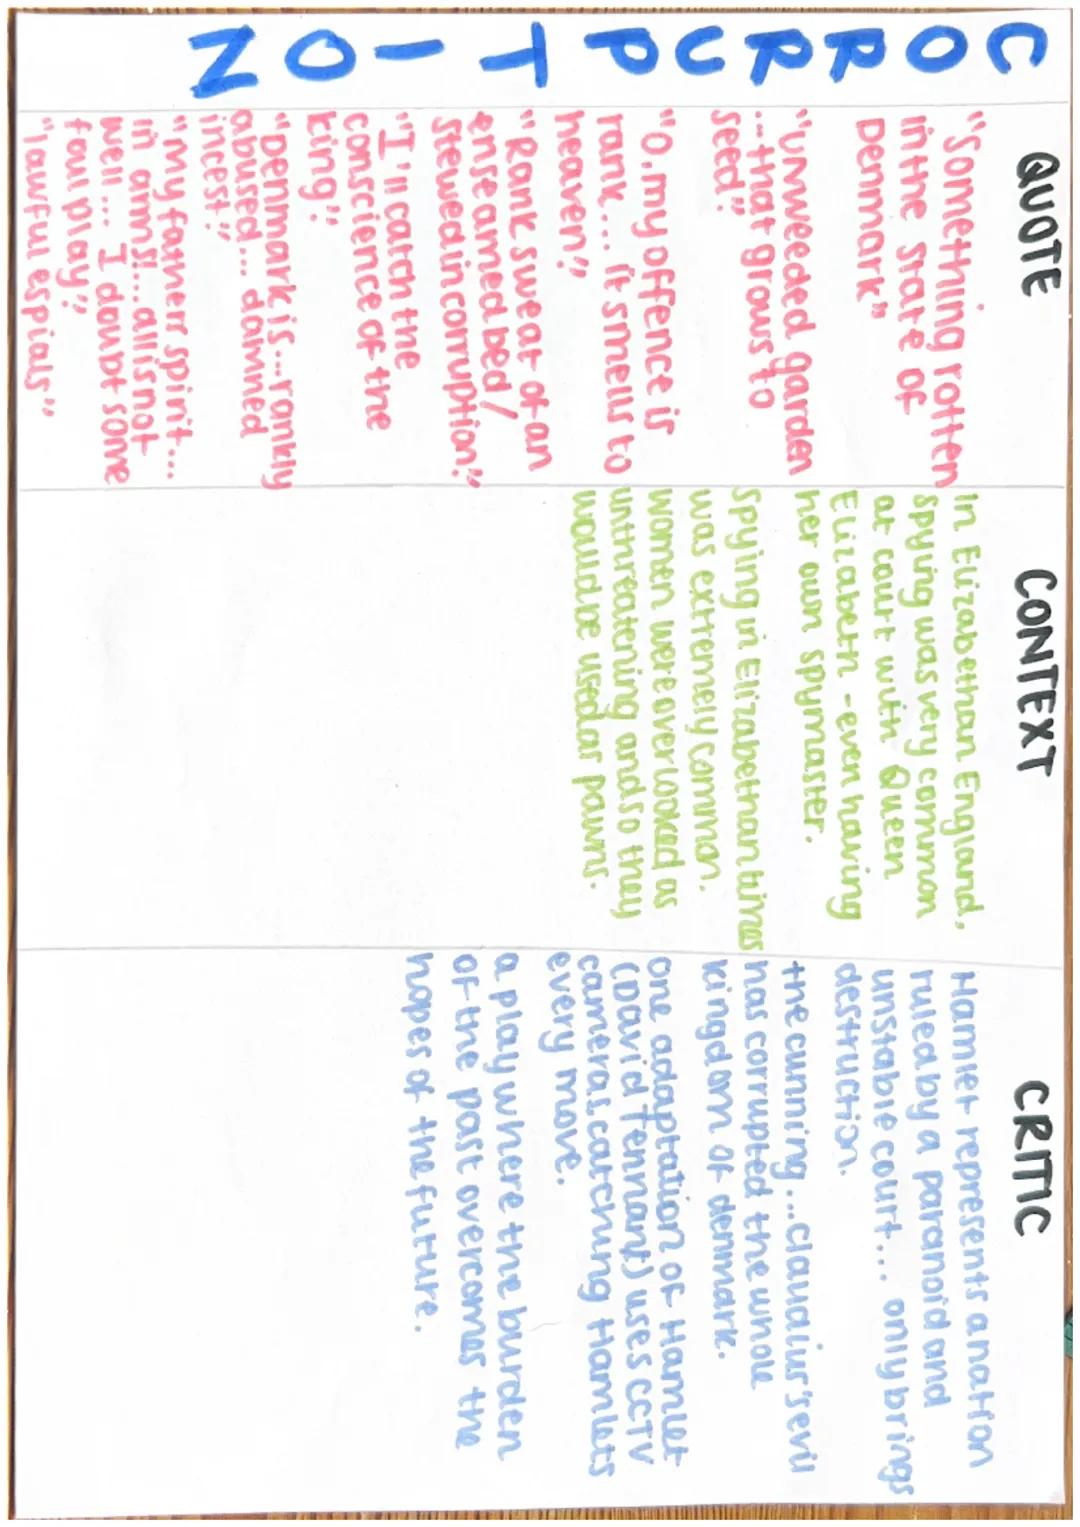 CORRUPTION
QUOTE
"Something rotten
in the state of
Denmark"
"Unweeded garden
...that grows to
seed"
"O, my offence is
rank... it smells to
heaven"
"Rank sweat of an
enseamed bed/
stewed in corruption"
"I'll catch the
conscience of the
king"
"Denmark is...rankly
abused... damned
incest"
"my fathers spirit...
in arms!... all is not
well... I doubt some
foul play"
"lawful espials"
CONTEXT
in Elizabethan England,
spying was very common
at court with Queen
Elizabeth - even having
her own spymaster.
spying in Elizabethan times
was extremely common.
women were overlooked as
unthreatening and so they
would be used as pawns.
CRITIC
Hamlet represents a nation
ruled by a paranoid and
unstable court... only brings
destruction.
the cunning...claudius's evil
has corrupted the whole
kingdom of denmark.
one adaptation of Hamlet
(David Tennant) uses CCTV
cameras catching Hamlets
every move.
a play where the burden
of the past overcomes the
hopes of the future.